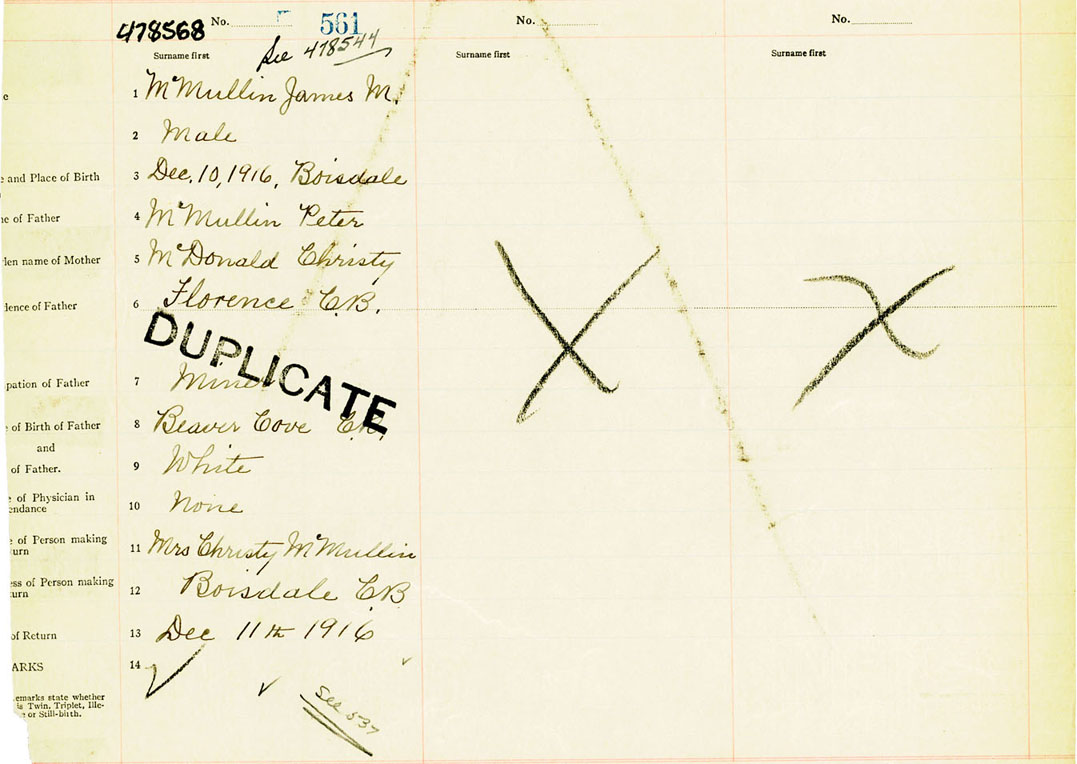 478568 No. 561 No. No.
See 478544
Surname first Surname first Surname first
1 McMullin James M.
2 Male
e and Place of Birth 3 Dec. 10, 1916, Boisdale
ne of Father 4 McMullin Peter
den name of Mother 5 McDonald Christy
dence of Father 6 Florence C.B.
DUPLICATE
pation of Father 7 Mine
e of Birth of Father 8 Beaver Cove C.B.
and
of Father. 9 White
e of Physician in
endance 10 None
e of Person making
urn 11 Mrs Christy McMullin
ess of Person making
urn 12 Boisdale C.B.
of Return 13 Dec 11th 1916
ARKS 14
emarks state whether
is Twin, Triplet, Ille-
e or Still-birth.
See 537